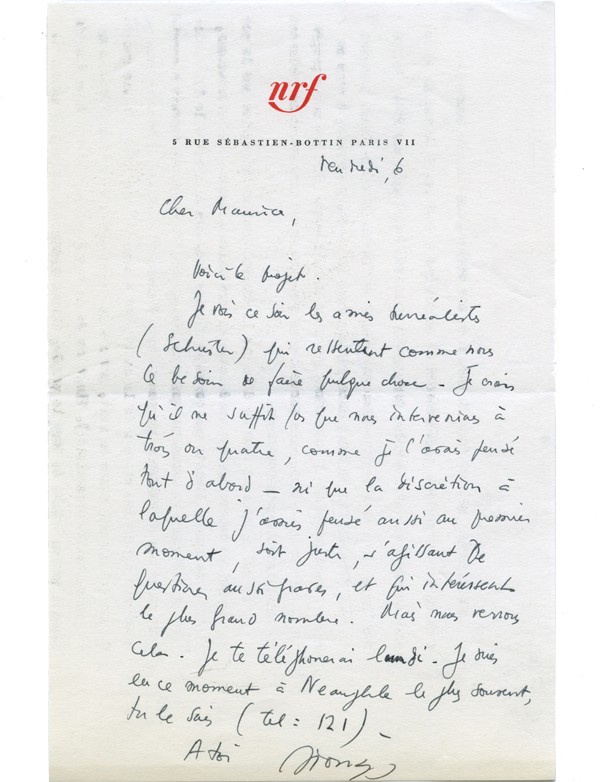 nrf
5 RUE SÉBASTIEN-BOTTIN PARIS VII
Vendredi, 6
Cher Maurice,
Voici le projet.
Je vois ce soir les amis surréalistes
(Schuster) qui ressentent comme nous
le besoin de faire quelque chose - Je crois
qu'il ne suffit pas que nous intervenions à
trois ou quatre, comme je l'avais pensé
tout d'abord - ni que la discrétion à
laquelle j'avais pensé aussi au premier
moment, soit juste, s'agissant de
questions aussi graves, et qui intéressent
le plus grand nombre. Mais nous verrons
cela. Je te téléphonerai lundi. Je suis
en ce moment à Neauphle le plus souvent,
tu le sais (tel : 121) -
A toi